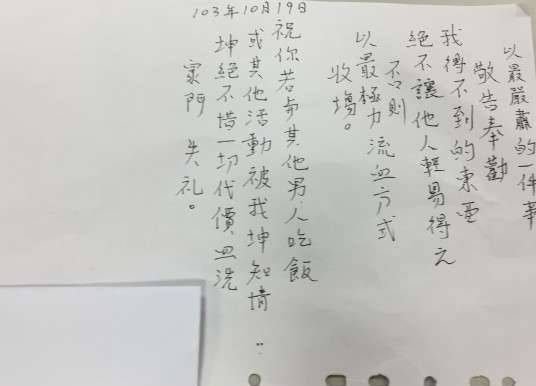 以最嚴肅的一件事
敬告奉勸
我得不到的東西
絕不讓他人輕易得之
否則
以最極力流血方式
收場。
祝你若与其他男人吃飯
或其他活動被我坤知情：
坤絕不惜一切代價，血洗
家門 失礼。
103年10月19日